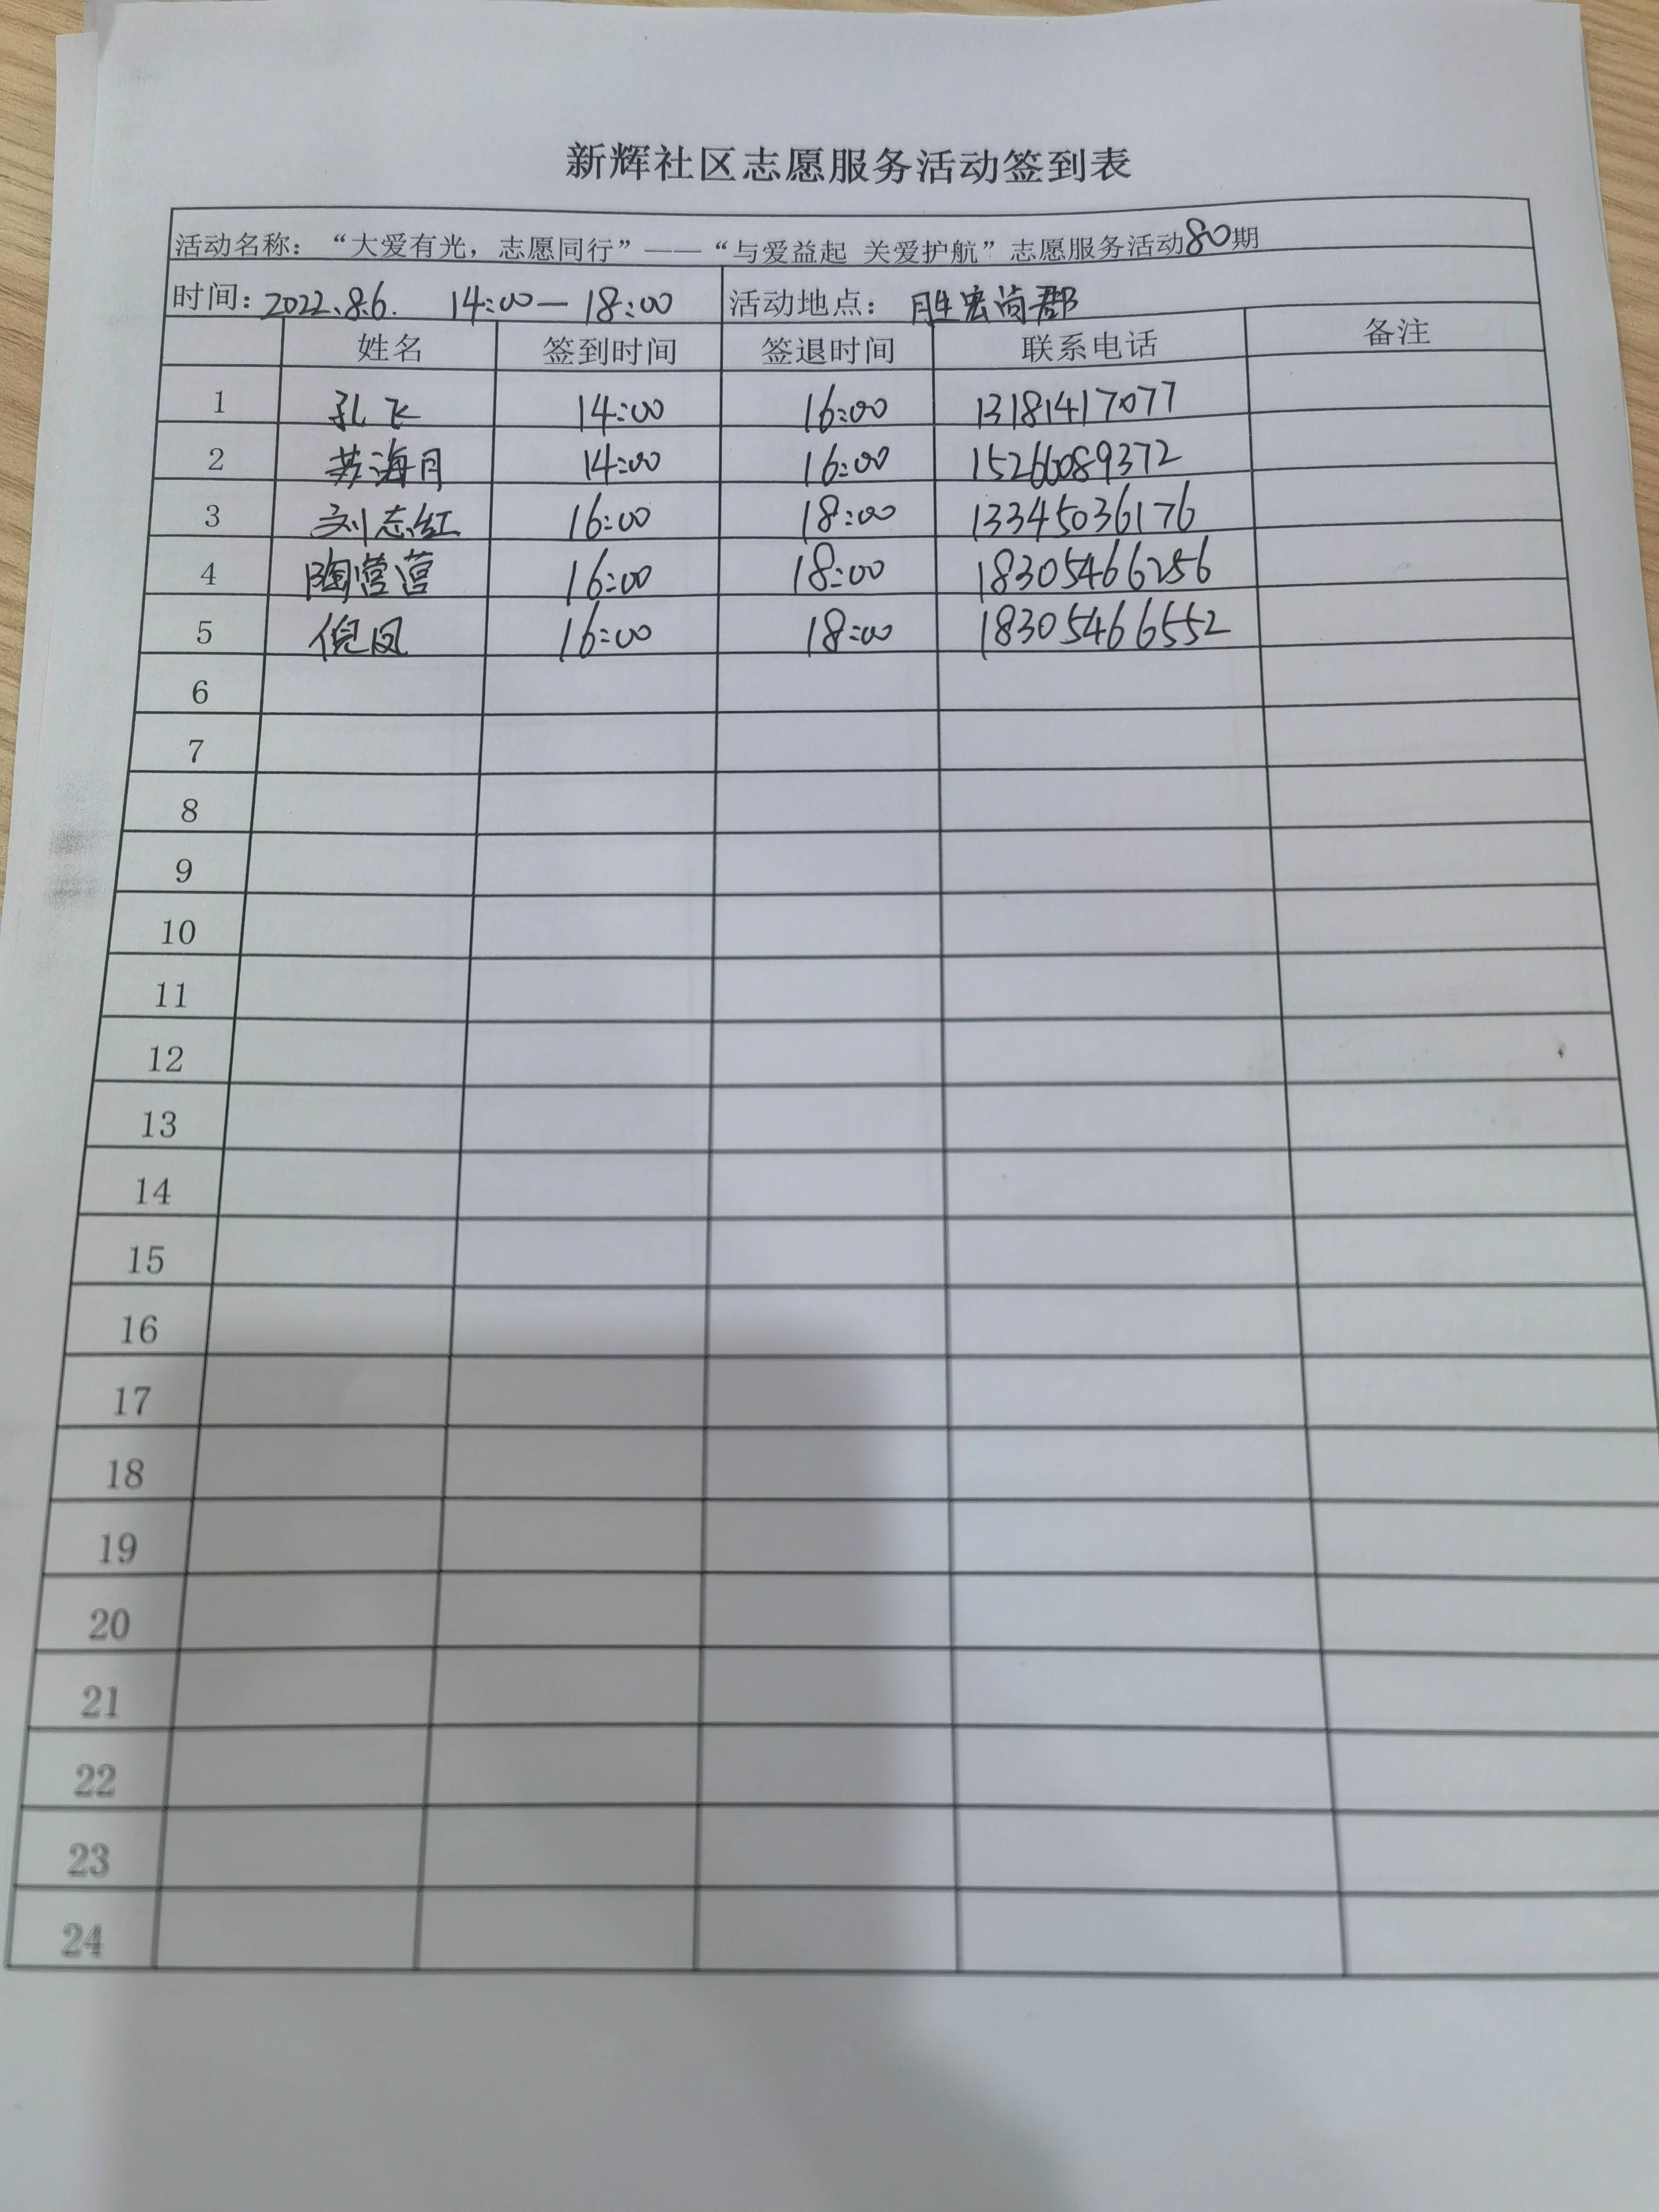 新辉社区志愿服务活动签到表
活动名称：“大爱有光，志愿同行”——“与爱益起 关爱护航”志愿服务活动80期
时间：2022.8.6. 14:00—18:00 活动地点：胜宏尚郡
姓名 签到时间 签退时间 联系电话 备注
1 孔飞 14:00 16:00 13181417077
2 苏海月 14:00 16:00 15266089372
3 刘志红 16:00 18:00 13345036176
4 陶莹莹 16:00 18:00 18305466256
5 倪凤 16:00 18:00 18305466552
6
7
8
9
10
11
12
13
14
15
16
17
18
19
20
21
22
23
24